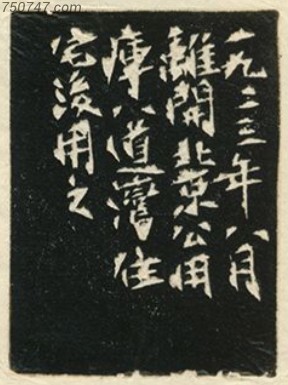 750747.com
一九二三年八月
離開北京公用
庫八道灣住
宅後用之